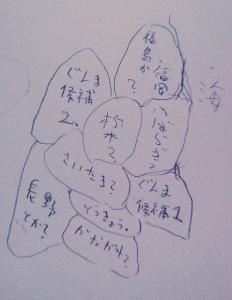 福島か
福岡
?
ぐんま
候補
2、
栃木?
いばらぎ?
海
さいたま?
ぐんま
候補1
長野
とか?
とうきょう。
かながわ?